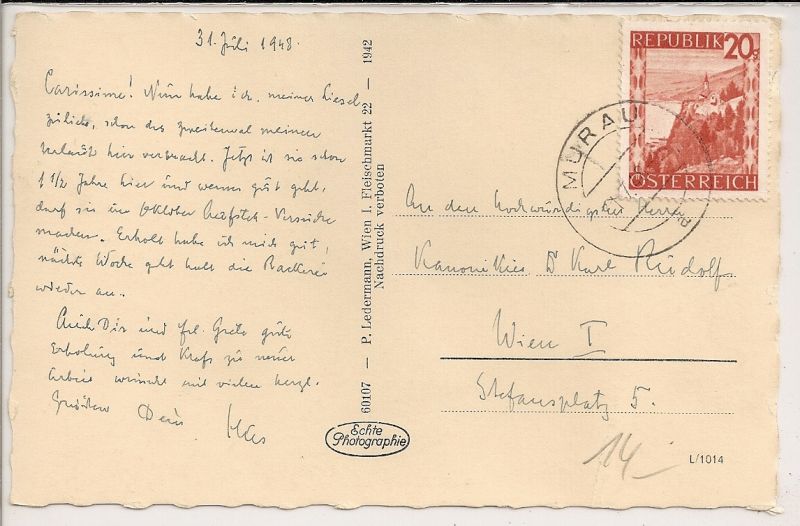 31. Juli 1948.
Carissime! Nun habe ich meiner Liesel
zulieb, schon das zweitemal meinen
Urlaub hier verbracht. Jetzt ist sie schon
1 1/2 Jahre hier und wenns gut geht,
darf sie im Oktober Versuche
machen. Erholt habe ich mich gut,
nächste Woche geht halt die Backerei
wieder an.
Auch Dir und Frl. Grete gute
Erholung und Kraft zu neuer
Arbeit wünscht mit vielen herzl.
Grüßen Dein
60107 — P. Ledermann, Wien I. Fleischmarkt 22 — 1942
Nachdruck verboten
Echte
Photographie
REPUBLIK 20g
ÖSTERREICH
MURAU
An den hochwürdigsten Herrn
Kanonikus Dr Karl Rudolf
Wien I
Stefansplatz 5.
14
L/1014